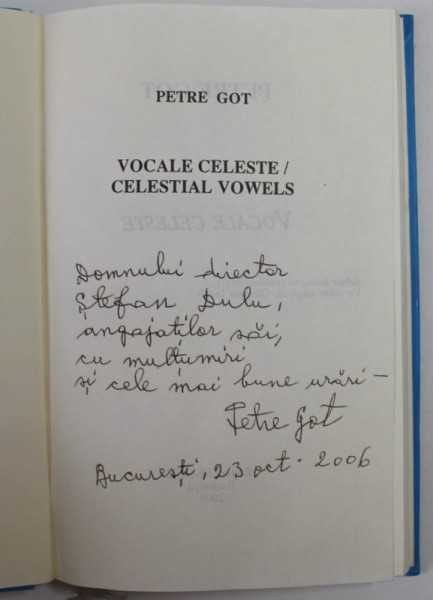 PETRE GOT
VOCALE CELESTE /
CELESTIAL VOWELS
Domnului director
Ștefan Dulu,
angajaților săi,
cu mulțumiri
și cele mai bune urări –
Petre Got
București, 23 oct. 2006